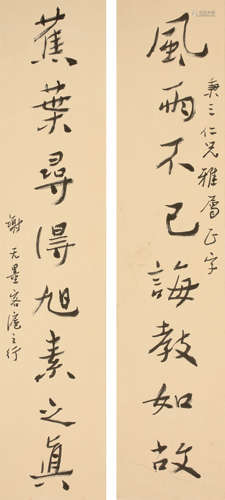 秉三仁兄雅屬正字
風雨不已誨教如故
蕉葉尋得旭素之眞
謝无量客滬之行